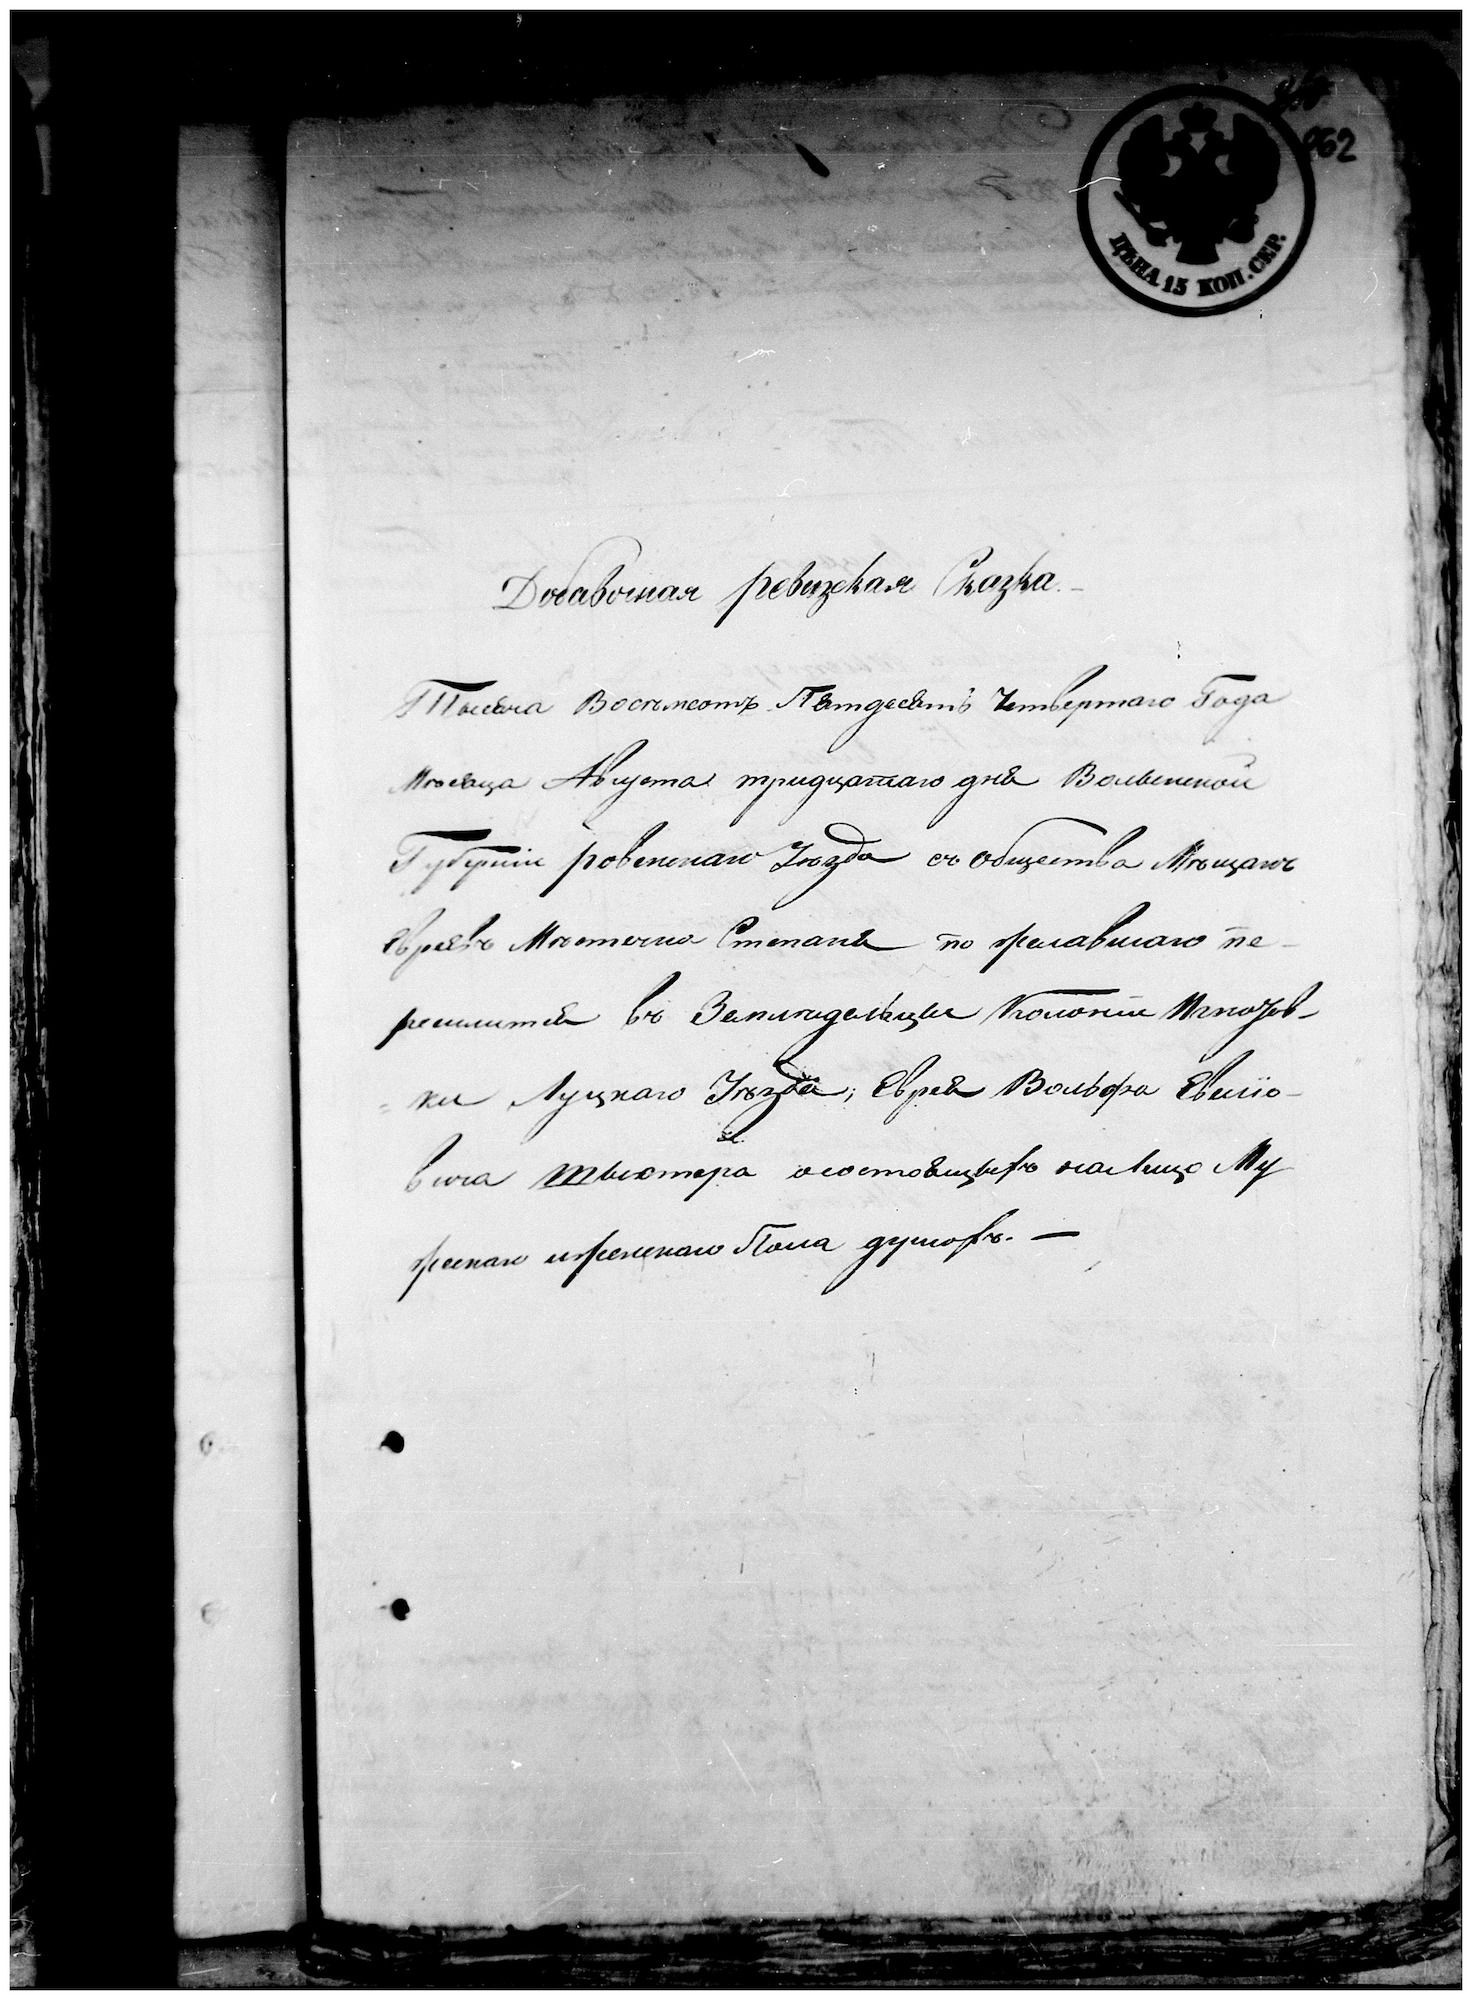 962
ЦѢНА 15 КОП. СЕР.
Добавочная ревизская Сказка.-
Тысяча Восемсотъ Пятдесятъ Четвертаго Года
Мѣсяца Августа тридцатаго дня Волынской
Губернiи ровенскаго Уѣзда съ общества Мѣщанъ
Евреевъ Мѣстечка Степаня по желавшаго пе-
реселится въ Земледельцы Колонiи Игнатов-
ки Луцкаго Уѣзда; Еврея Вольфа
вича о состоящихъ на лицо Му
жескаго и женскаго Пола душахъ. —